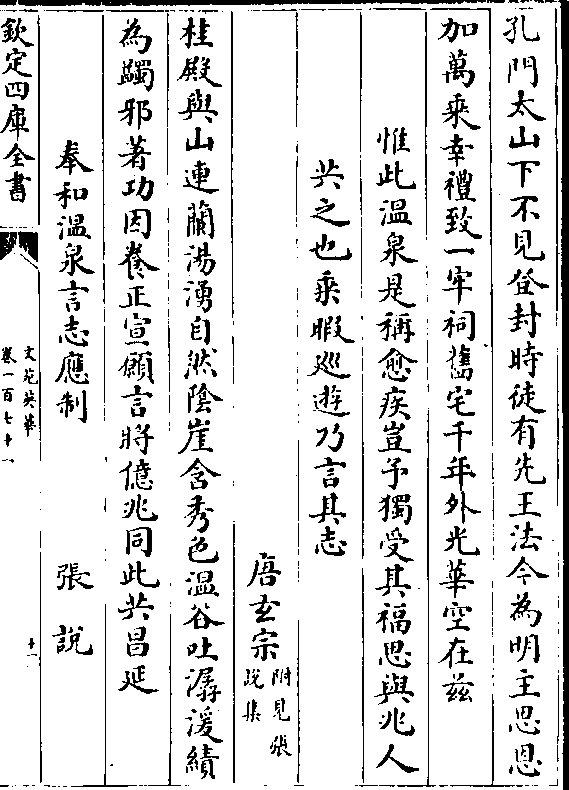 孔門太山下不見登封時徒有先王法今為明主思恩
加萬乘幸禮致一牢祠舊宅千年外光華空在兹
惟此溫泉是稱愈疾豈予獨受其福思與兆人
共之也乘暇巡遊乃言其志
唐玄宗附見張說集
桂殿與山連蘭湯湧自然陰崖含秀色温谷吐潺湲績
為蠲邪著功因養正宣願言將億兆同此共昌延
奉和溫泉言志應制 張說
欽定四庫全書
文苑英華
卷一百七十一
十一